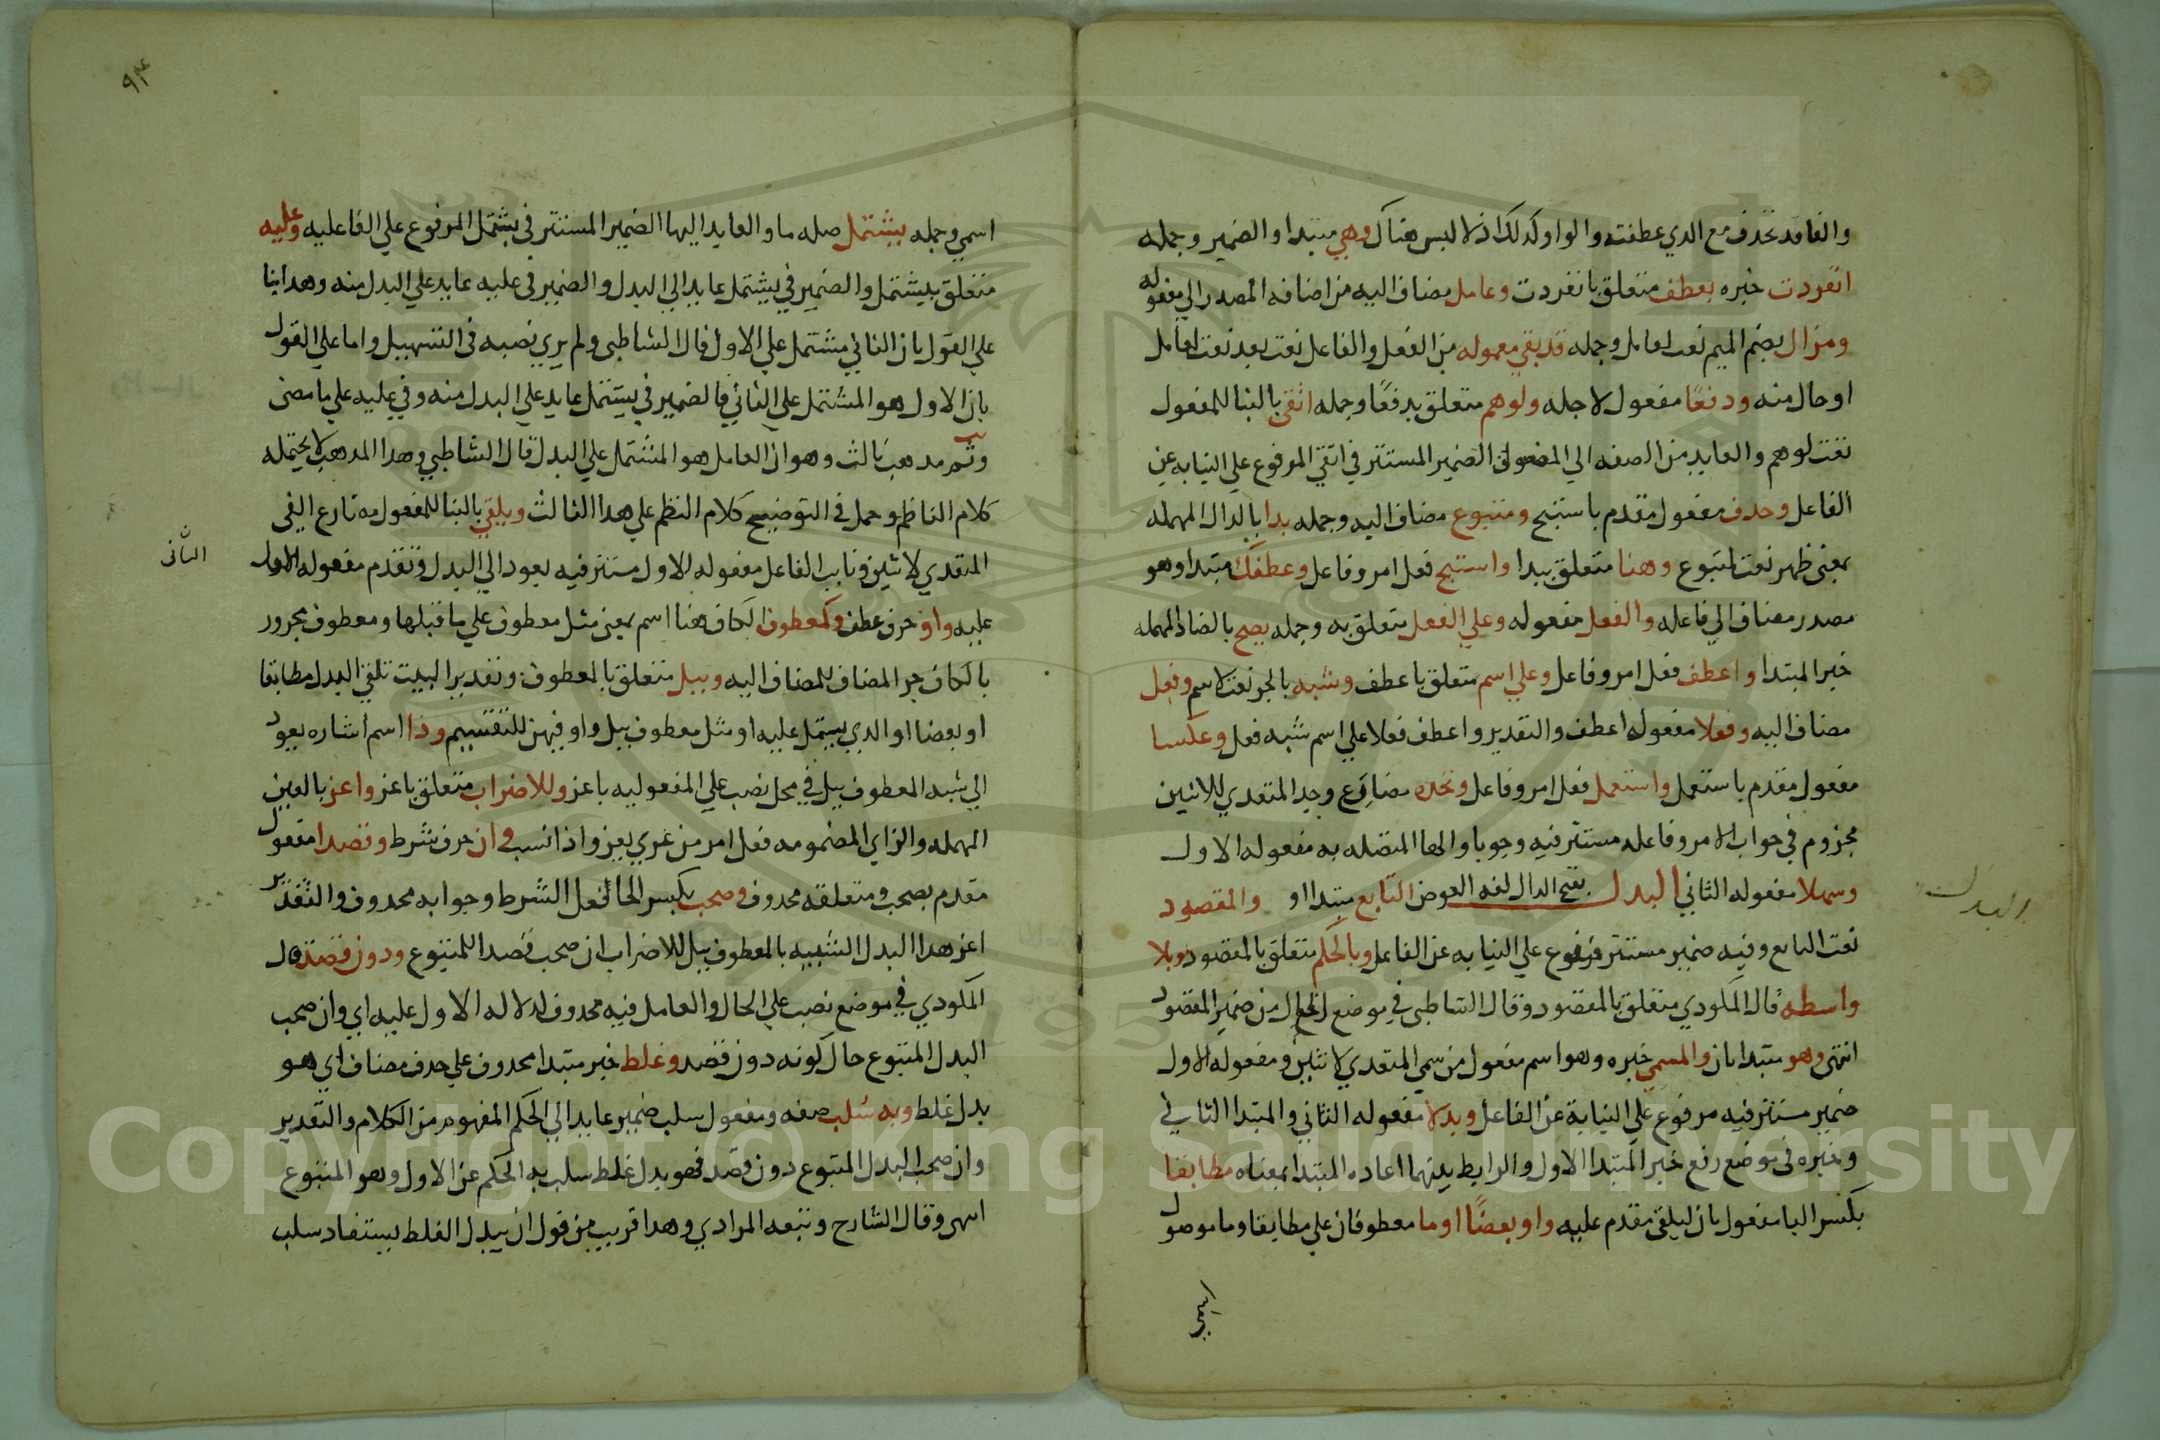 والفا قد تحذف مع الذي عطفت والواو كذلك اذ لا لبس هناك وهي مبتدا والضمير وجمله
انفردت خبره بعطف متعلق بانفردت وعامل مضاف اليه من اضافه المصدر الي مفعوله
ومزال بضم الميم نعت لعامل وجمله قد بقي معموله من الفعل والفاعل نعت بعد نعت لعامل
او حال منه ودفعًا مفعول لاجله ولوهم متعلق بدفعًا وجمله اتقي بالبنا للمفعول
نعت لوهم والعايد من الصفه الي الموصوف الضمير المستتر في اتقي المرفوع علي النيابه عن
الفاعل وحذف مفعول مقدم باستبح ومتبوع مضاف اليه وجمله بدا بالدال المهمله
بمعني ظهر نعت لمتبوع وهنا متعلق ببدا واستبح فعل امر وفاعل وعطفك مبتدا وهو
مصدر مضاف الي فاعله والفعل مفعوله وعلي الفعل متعلق به وجمله يصح بالصاد المهمله
خبر المبتدا واعطف فعل امر وفاعل وعلي اسم متعلق باعطف وشبه بالجر نعت لاسم وفعل
مضاف اليه وفعلا مفعوله اعطف والتقدير واعطف فعلا علي اسم شبه فعل وعكسا
مفعول مقدم باستعمل واستعمل فعل امر وفاعل وتجده مضارع وجد المتعدي للاثنين
مجزوم في جواب الامر وفاعله مستتر فيه وجوبا والها المتصله به مفعوله الاول
وسهلا مفعوله الثاني البدل بفتح الدال لغه العوض التابع مبتدا او والمقصود
نعت التابع وفيه ضمير مستتر مرفوع علي النيابه عن الفاعل وبالحكم متعلق بالمقصود وبلا
واسطه قال المكودي متعلق بالمقصود وقال الشاطبي في موضع الحال من ضمير المقصود
انتهي وهو مبتدا ثان والمسمي خبره وهو اسم مفعول من سمي المتعدي لاثنين ومفعوله الاول
ضمير مستتر فيه مرفوع علي النيابة عن الفاعل وبدلا مفعوله الثاني والمبتدا الثاني
وخبره في موضع رفع خبر المبتدا الاول والرابط بينهما اعاده المبتدا بمعناه مطابقا
بكسر البا مفعول ثان ليلقي مقدم عليه واو بعضًا او ما معطوفان علي مطابقا وما موصول
اسمي
البدل
٩٣
اسمي وجمله يشتمل صله ما والعايد اليها الضمير المستتر في يشتمل المرفوع علي الفاعليه وعليه
متعلق بيشتمل والضمير في يشتمل عايد الي البدل والضمير في عليه عايد علي البدل منه وهذا بنا
علي القول بان الثاني مشتمل علي الاول قال الشاطبي ولم يري نصبه في التسهيل واما علي القول
بان الاول هو المشتمل علي الثاني فالضمير في يشتمل عايد علي البدل منه وفي عليه علي ما مضي
وثم مذهب ثالث وهو ان العامل هو المشتمل علي البدل قال الشاطبي وهذا المذهب لا يحتمله
كلام الناظم وحمل في التوضيح كلام النظم علي هذا الثالث ويلقي بالبنا للمفعول مضارع الفي
المتعدي لاثنين ونايب الفاعل مفعوله الاول مستتر فيه يعود الي البدل وتقدم مفعوله الاول
الثانى
عليه واو حرف عطف وكمعطوف الكاف هنا اسم بمعني مثل معطوف علي ما قبلها ومعطوف مجرور
بالكاف جر المضاف للمضاف اليه وببل متعلق بالمعطوف وتقدير البيت تلقي البدل مطابقا
او بعضا او الذي يشتمل عليه او مثل معطوف ببل واو فيهن للتقسيم وذا اسم اشاره يعود
الي شبه المعطوف ببل في محل نصب علي المفعوليه باعز وللاضراب متعلق باعز واعز بالعين
المهمله والزاي المضمومه فعل امر من عزي يعزو اذا نسب وان حرف شرط وقصدا مفعول
مقدم بصحب ومتعلقه محذوف وصحب بكسر الحا فعل الشرط وجوابه محذوف والتقدير
اعز هذا البدل الشبيه بالمعطوف ببل للاضراب ان صحب قصدا للمتبوع ودون قصد قال
المكودي في موضع نصب علي الحال والعامل فيه محذوف لدلاله الاول عليه اي وان صحب
البدل المتبوع حال كونه دون قصد وغلط خبر مبتدا محذوف علي حذف مضاف اي هو
بدل غلط وبه سلب صفه ومفعول سلب ضمير عايد الي الحكم المفهوم من الكلام والتقدير
وان صحب البدل المتبوع دون قصد فهو بدل غلط سلب به الحكم عن الاول وهو المتبوع
انتهي وقال الشارح وتبعه المرادي وهذا قريب من قول ان ببدل الغلط يستفاد سلب
Copyright © King Saud University